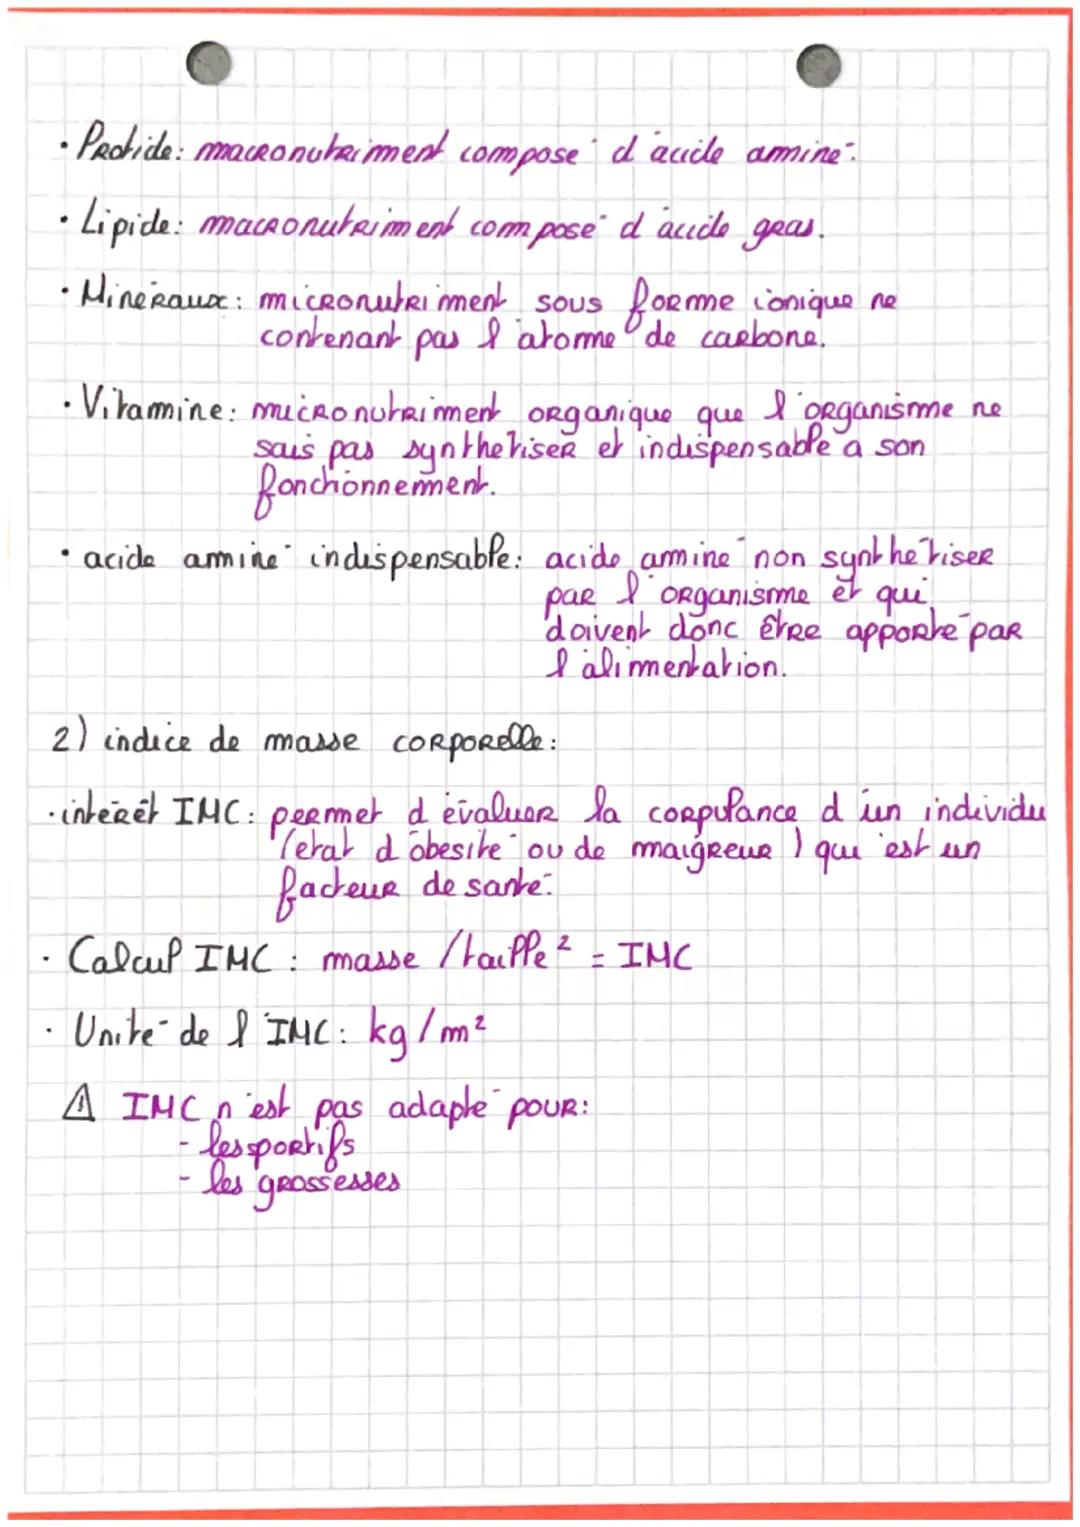 · Protide: macronutriment composé d'acide aminé.
· Lipide: macronutriment composé d'acide gras.
· Minéraux: micronutriment sous forme ionique ne
contenant pas l'atome de carbone.
· Vitamine: micronutriment organique que l'organisme ne
sais pas synthétiser et indispensable a son
fonctionnement.
· acide aminé indispensable: acide aminé non synthétiser
par l'organisme et qui
doivent donc être apporté par
l'alimentation.
2) indice de masse corporelle:
· intérêt IMC: permet d'évaluer la corpulance d'un individu
(état d'obésité ou de maigreur) qui est un
facteur de santé.
· Calcul IMC : masse /taille² = IMC
· Unité de l'IMC: kg/m²
⚠ IMC n'est pas adapté pour:
- les sportifs
- les grossesses